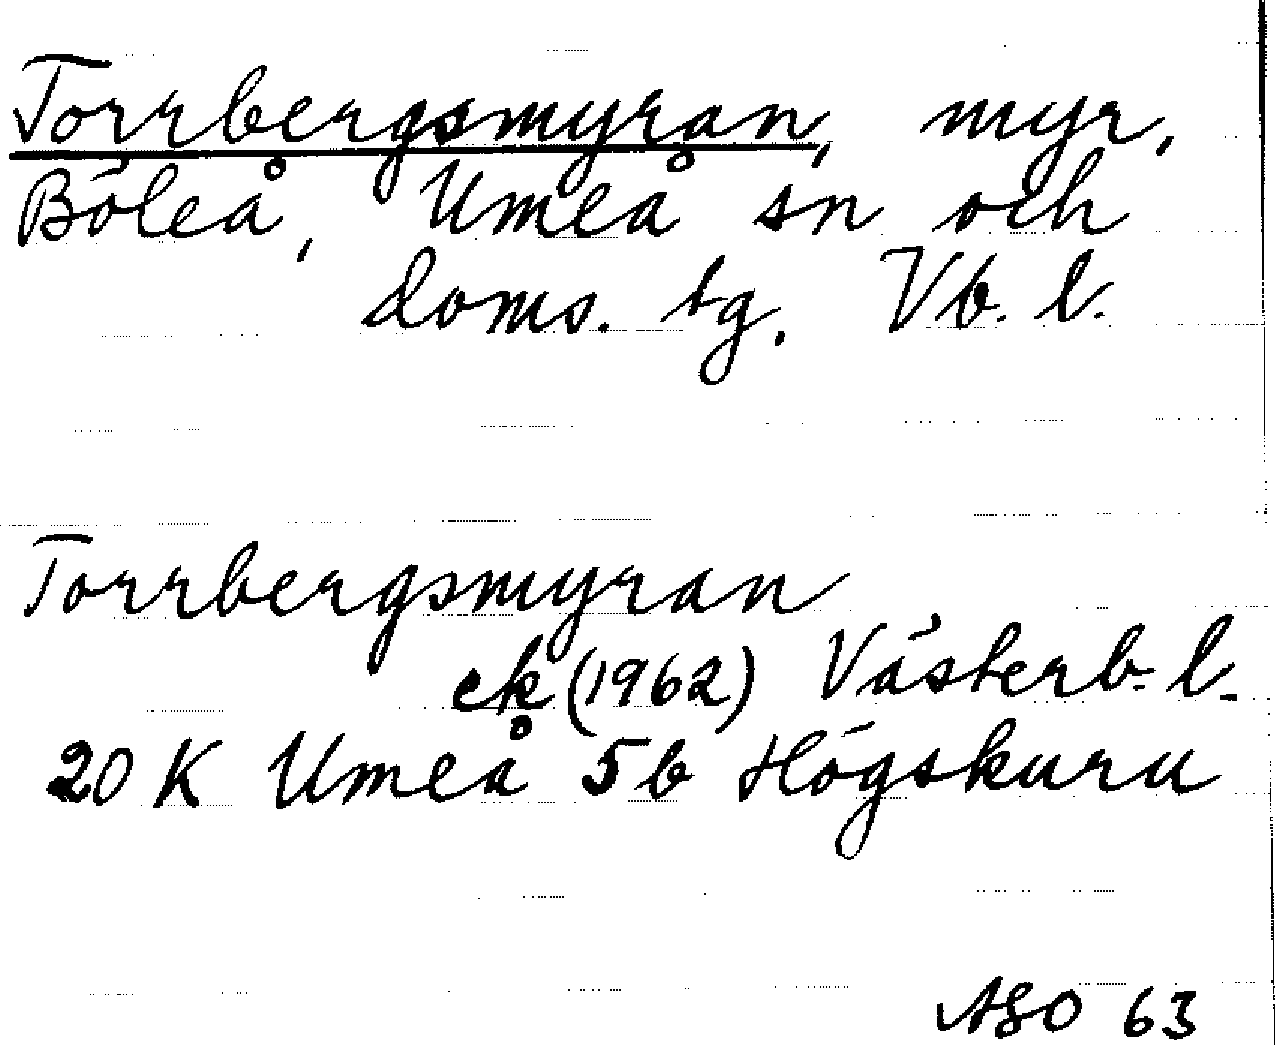 Torrbergsmyran, myr,
Böleå, Umeå sn och
doms. tg. Vb. l.
Torrbergsmyran
ek (1962) Västerb. l.
20 K Umeå 5b Högskuru
ASO 63